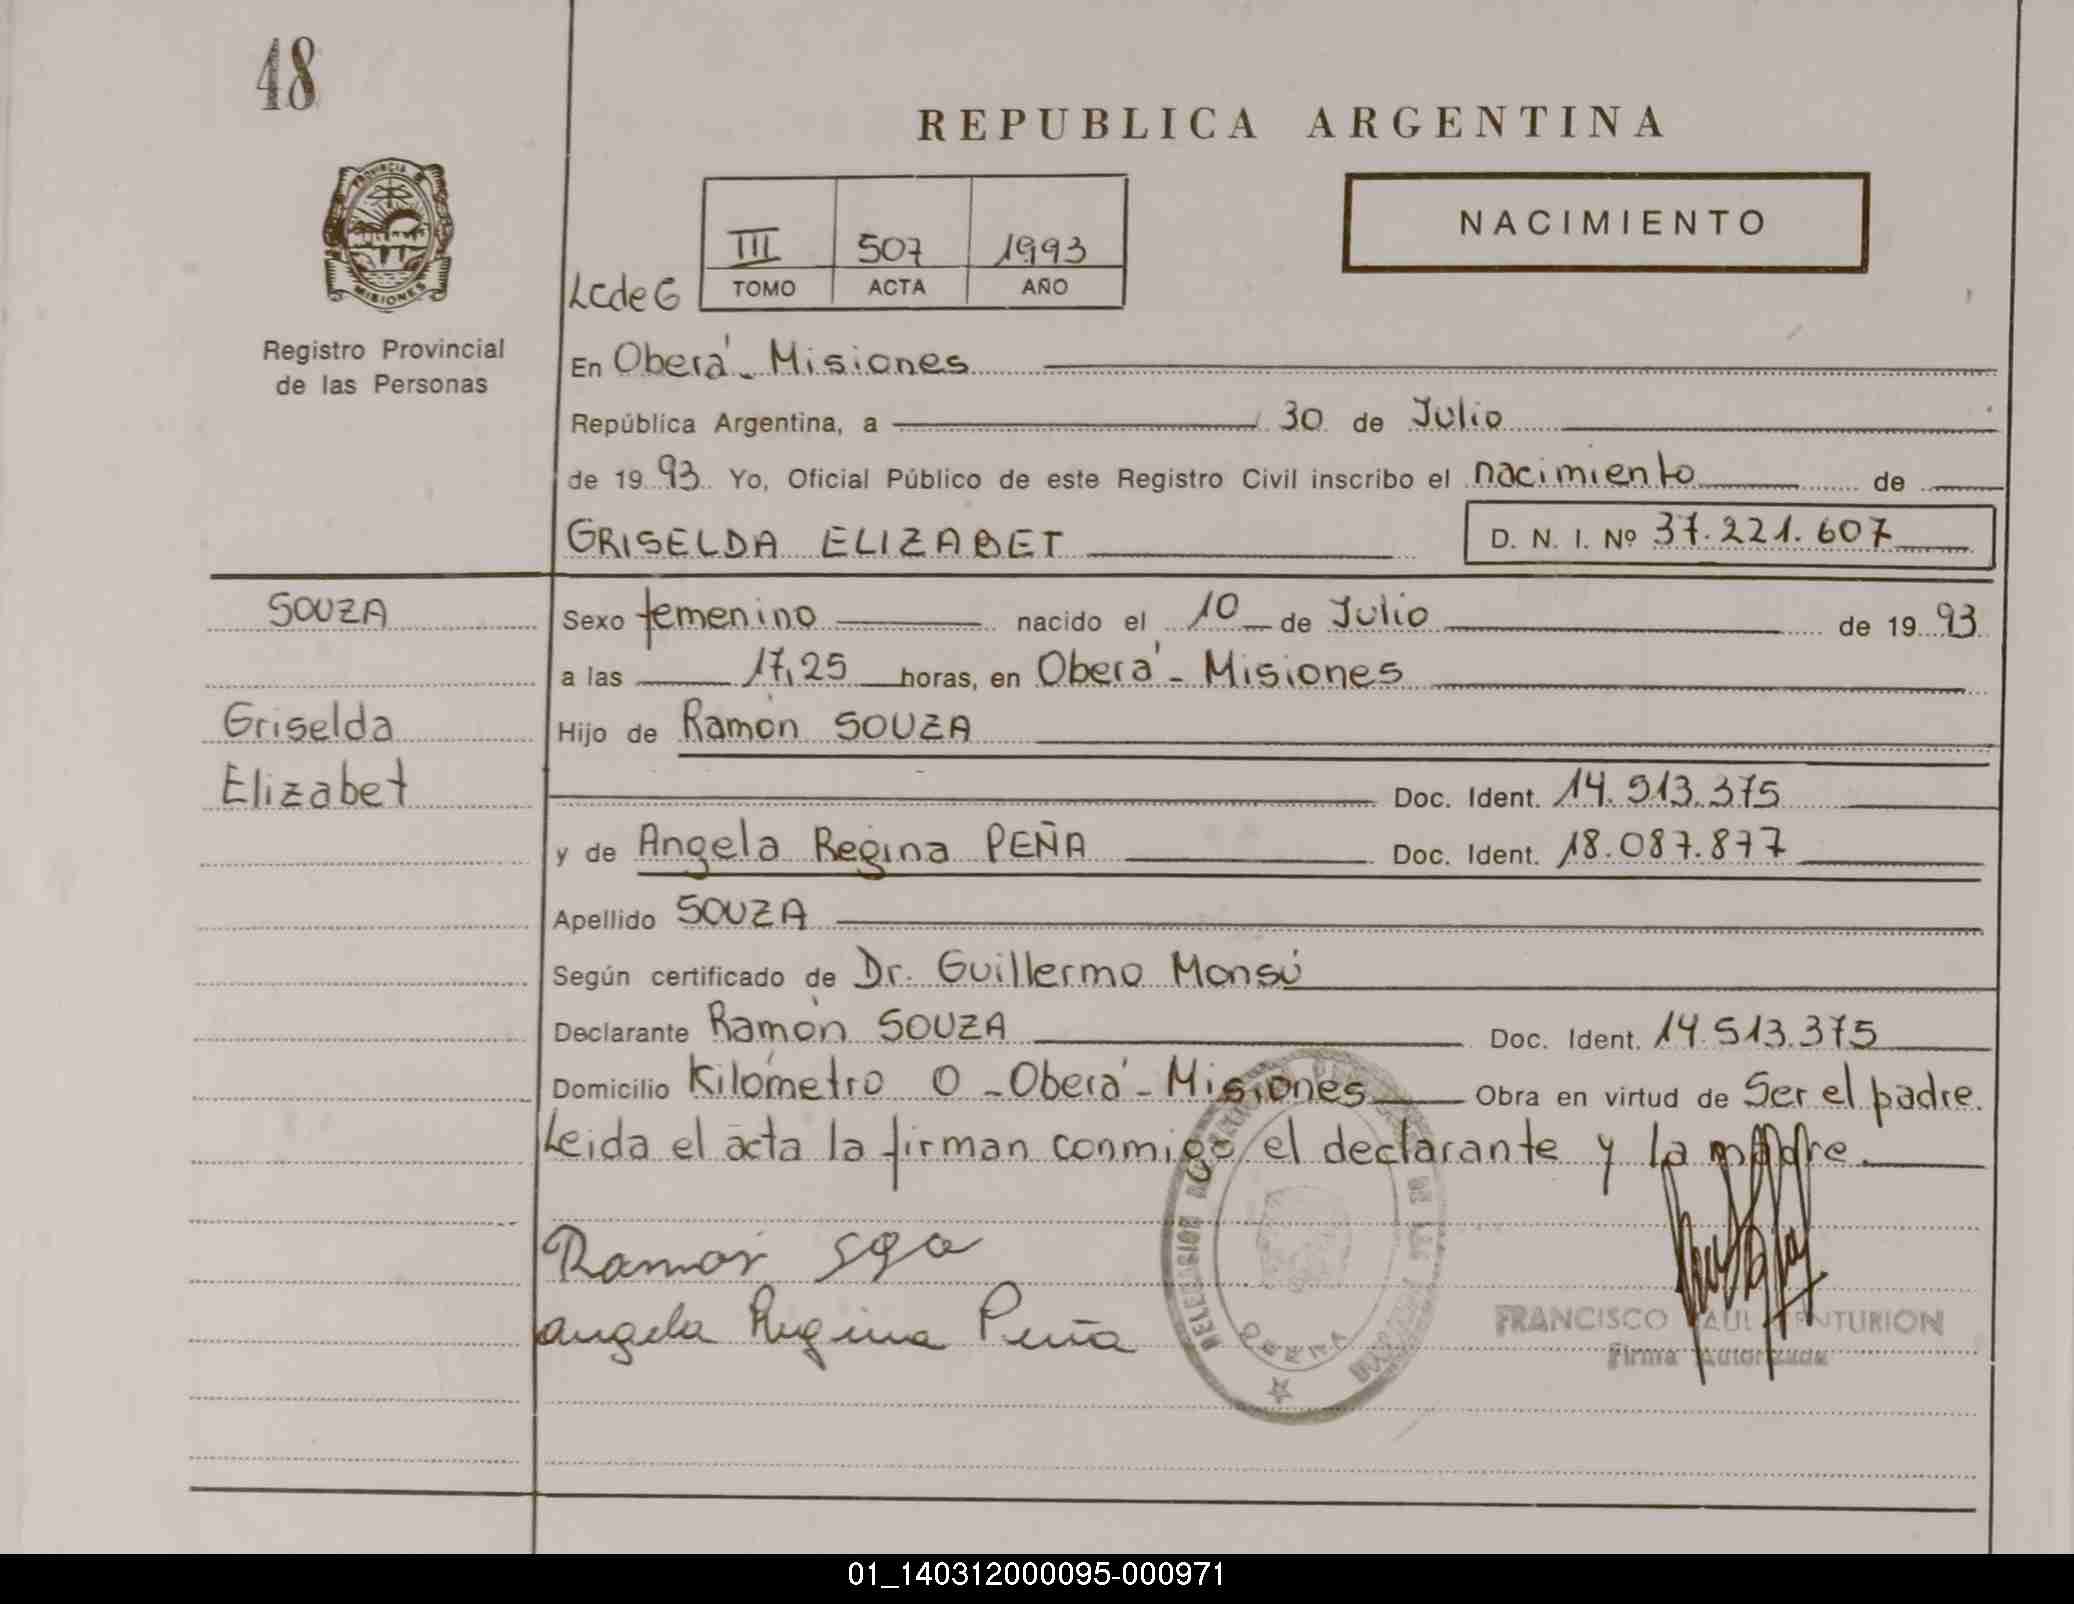 48
REPUBLICA ARGENTINA
PROVINCIA DE
MISIONES
NACIMIENTO
III 507 1993
LCdeG TOMO ACTA AÑO
Registro Provincial
de las Personas
En Oberá - Misiones
República Argentina, a 30 de Julio
de 19 93 Yo, Oficial Público de este Registro Civil inscribo el nacimiento de
GRISELDA ELIZABET D. N. I. Nº 37.221.607
SOUZA
Griselda
Elizabet
Sexo femenino nacido el 10 de Julio de 19 93
a las 17,25 horas, en Oberá - Misiones
Hijo de Ramón SOUZA
Doc. Ident. 14.513.375
y de Angela Regina PEÑA Doc. Ident. 18.087.877
Apellido SOUZA
Según certificado de Dr. Guillermo Monsú
Declarante Ramón SOUZA Doc. Ident. 14.513.375
Domicilio Kilómetro 0 - Oberá - Misiones Obra en virtud de Ser el padre.
Leida el acta la firman conmigo el declarante y la madre.
Ramon
angela Regina Peña
OBERA
FRANCISCO RAUL CENTURION
Firma Autorizada
01_140312000095-000971